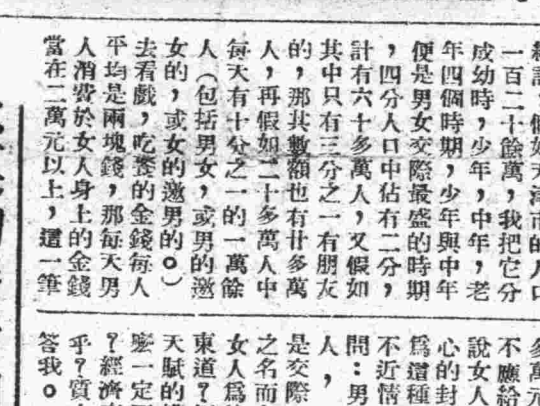 假如天津市的人口
一百二十餘萬，我把它分
成幼時，少年，中年，老
年四個時期，少年與中年
便是男女交際最盛的時期
，四分人口中佔有二分，
計有六十多萬人，又假如
其中只有三分之一有朋友
的，那其數額也有廿多萬
人，再假如二十多萬人中
每天有十分之一的一萬餘
人（包括男女，或男的邀
女的，或女的邀男的。）
去看戲，吃餐的金錢每人
平均是兩塊錢，那每天男
人消費於女人身上的金錢
當在二萬元以上，這一筆
多萬元
不應給
說女人
心的封
爲這種
不近情
問：男
人，
是交際
之名而
女人爲
東道？
天賦的
麽一定
？經濟
乎？質
答我。